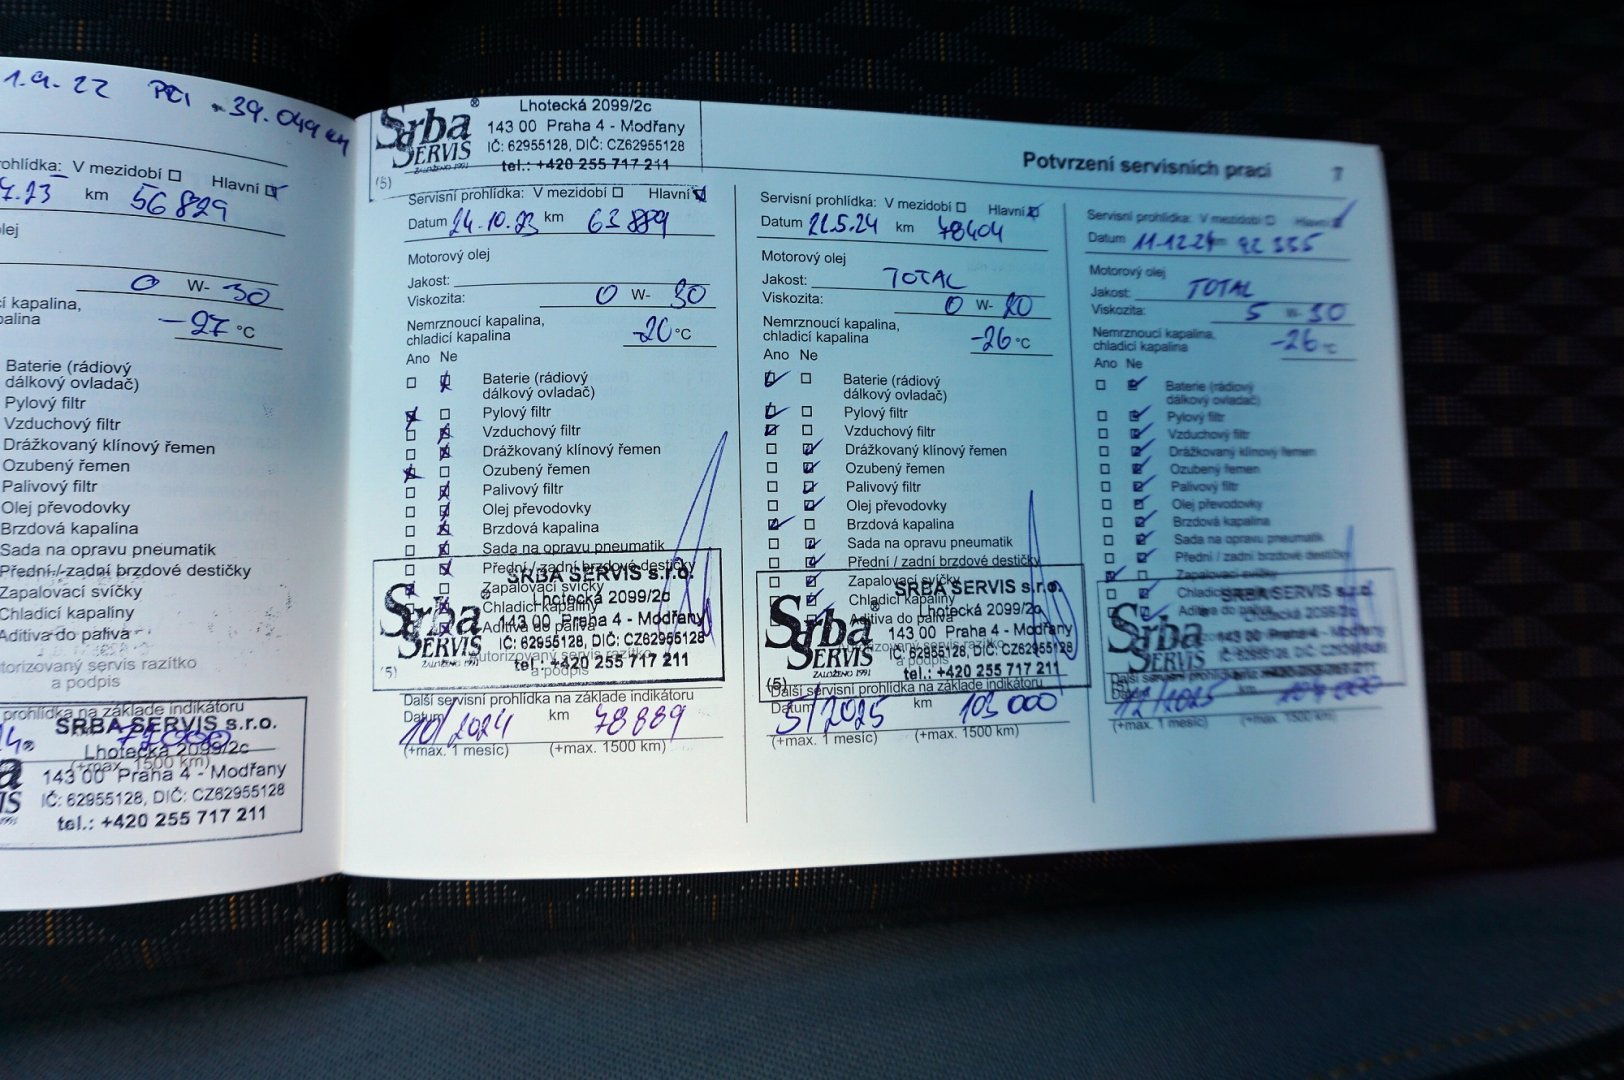 1.9.22 PČI - 39.049 km
ohlídka: V mezidobí Hlavní
7.23 km 56 829
lej
0 W- 30
cí kapalina,
palina -27 °C
Baterie (rádiový
dálkový ovladač)
Pylový filtr
Vzduchový filtr
Drážkovaný klínový řemen
Ozubený řemen
Palivový filtr
Olej převodovky
Brzdová kapalina
Sada na opravu pneumatik
Přední / zadní brzdové destičky
Zapalovací svíčky
Chladicí kapaliny
Aditiva do paliva
torizovaný servis razítko
a podpis
prohlídka na základe indikátoru
SRBA SERVIS s.r.o.
Lhotecká 2099/2c
(+max. 1500 km)
143 00 Praha 4 - Modřany
IČ: 62955128, DIČ: CZ62955128
tel.: +420 255 717 211
Srba SERVIS ®
ZALOŽENO 1991
Lhotecká 2099/2c
143 00 Praha 4 - Modřany
IČ: 62955128, DIČ: CZ62955128
tel.: +420 255 717 211
(5)
Servisní prohlídka: V mezidobí Hlavní
Datum 24.10.23 km 63 889
Motorový olej
Jakost:
Viskozita: 0 W- 30
Nemrznoucí kapalina,
chladicí kapalina -26 °C
Ano Ne
Baterie (rádiový
dálkový ovladač)
Pylový filtr
Vzduchový filtr
Drážkovaný klínový řemen
Ozubený řemen
Palivový filtr
Olej převodovky
Brzdová kapalina
Sada na opravu pneumatik
Přední / zadní brzdové destičky
Zapalovací svíčky
Chladicí kapaliny
Aditiva do paliva
Autorizovaný servis razítko
a podpis
Srba SERVIS ®
ZALOŽENO 1991
SRBA SERVIS s.r.o.
Lhotecká 2099/2c
143 00 Praha 4 - Modřany
IČ: 62955128, DIČ: CZ62955128
tel.: +420 255 717 211
(5)
Další servisní prohlídka na základe indikátoru
Datum 10/2024 km 78889
(+max. 1 mesíc) (+max. 1500 km)
Potvrzení servisních prací 7
Servisní prohlídka: V mezidobí Hlavní
Datum 21.5.24 km 78404
Motorový olej
Jakost: TOTAL
Viskozita: 0 W- 20
Nemrznoucí kapalina,
chladicí kapalina -26 °C
Ano Ne
Baterie (rádiový
dálkový ovladač)
Pylový filtr
Vzduchový filtr
Drážkovaný klínový řemen
Ozubený řemen
Palivový filtr
Olej převodovky
Brzdová kapalina
Sada na opravu pneumatik
Přední / zadní brzdové destičky
Zapalovací svíčky
Chladicí kapaliny
Aditiva do paliva
Autorizovaný servis razítko
a podpis
Srba SERVIS ®
ZALOŽENO 1991
SRBA SERVIS s.r.o.
Lhotecká 2099/2c
143 00 Praha 4 - Modřany
IČ: 62955128, DIČ: CZ62955128
tel.: +420 255 717 211
(5)
Další servisní prohlídka na základe indikátoru
Datum 5/2025 km 103 000
(+max. 1 mesíc) (+max. 1500 km)
Servisní prohlídka: V mezidobí Hlavní
Datum 11.12.24 km 92 335
Motorový olej
Jakost: TOTAL
Viskozita: 5 W- 30
Nemrznoucí kapalina,
chladicí kapalina -26 °C
Ano Ne
Baterie (rádiový
dálkový ovladač)
Pylový filtr
Vzduchový filtr
Drážkovaný klínový řemen
Ozubený řemen
Palivový filtr
Olej převodovky
Brzdová kapalina
Sada na opravu pneumatik
Přední / zadní brzdové destičky
Zapalovací svíčky
Chladicí kapaliny
Aditiva do paliva
Srba SERVIS
SRBA SERVIS s.r.o.
143 00 Praha 4 - Modřany
(5)
Datum 12/2025
(+max. 1 mesíc) (+max. 1500 km)